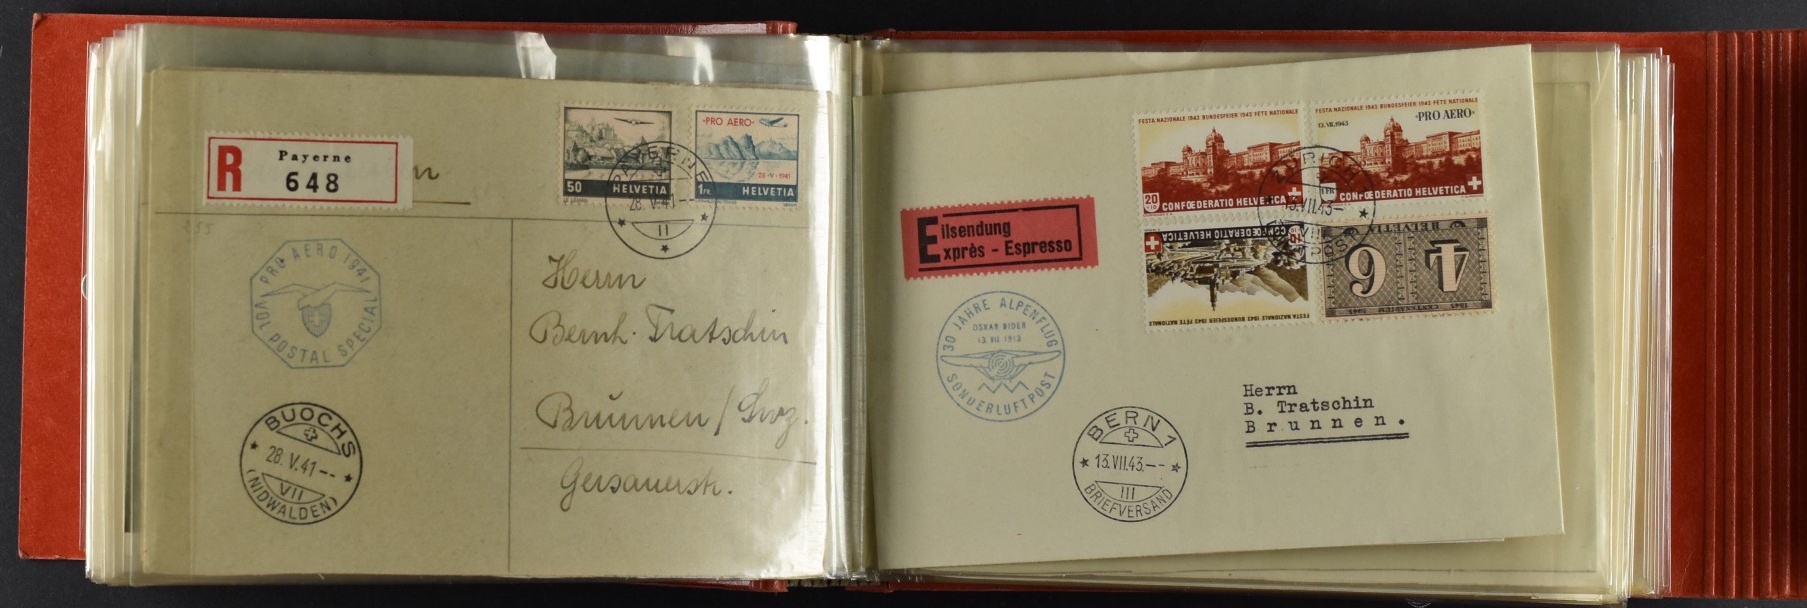 R
Payerne
648
50 HELVETIA
"PRO AERO"
28·V·1941
1FR. HELVETIA
PAYERNE
28.V.41--
II
PRO AERO 1941
VOL POSTAL SPECIAL
BUOCHS
28.V.41--
VII
(NIDWALDEN)
Herrn
Bernh. Tratschin
Brunnen / Swz.
Gersauerstr.
FESTA NAZIONALE 1943 BUNDESFEIER 1943 FÊTE NATIONALE
20+10
CONFŒDERATIO HELVETICA
FESTA NAZIONALE 1943 BUNDESFEIER 1943 FÊTE NATIONALE
13.VII.1943
"PRO AERO"
1FR
CONFŒDERATIO HELVETICA
ZÜRICH
13.VII.43-
VII
Eilsendung
Exprès - Espresso
CONFŒDERATIO HELVETICA
FESTA NAZIONALE 1943 BUNDESFEIER 1943 FÊTE NATIONALE
HELVETIA
4 6
1843 CENTENARIUM 1943
30 JAHRE ALPENFLUG
OSKAR BIDER
13 VII 1913
SONDERLUFTPOST
BERN 1
13.VII.43.--
III
BRIEFVERSAND
Herrn
B. Tratschin
Brunnen.